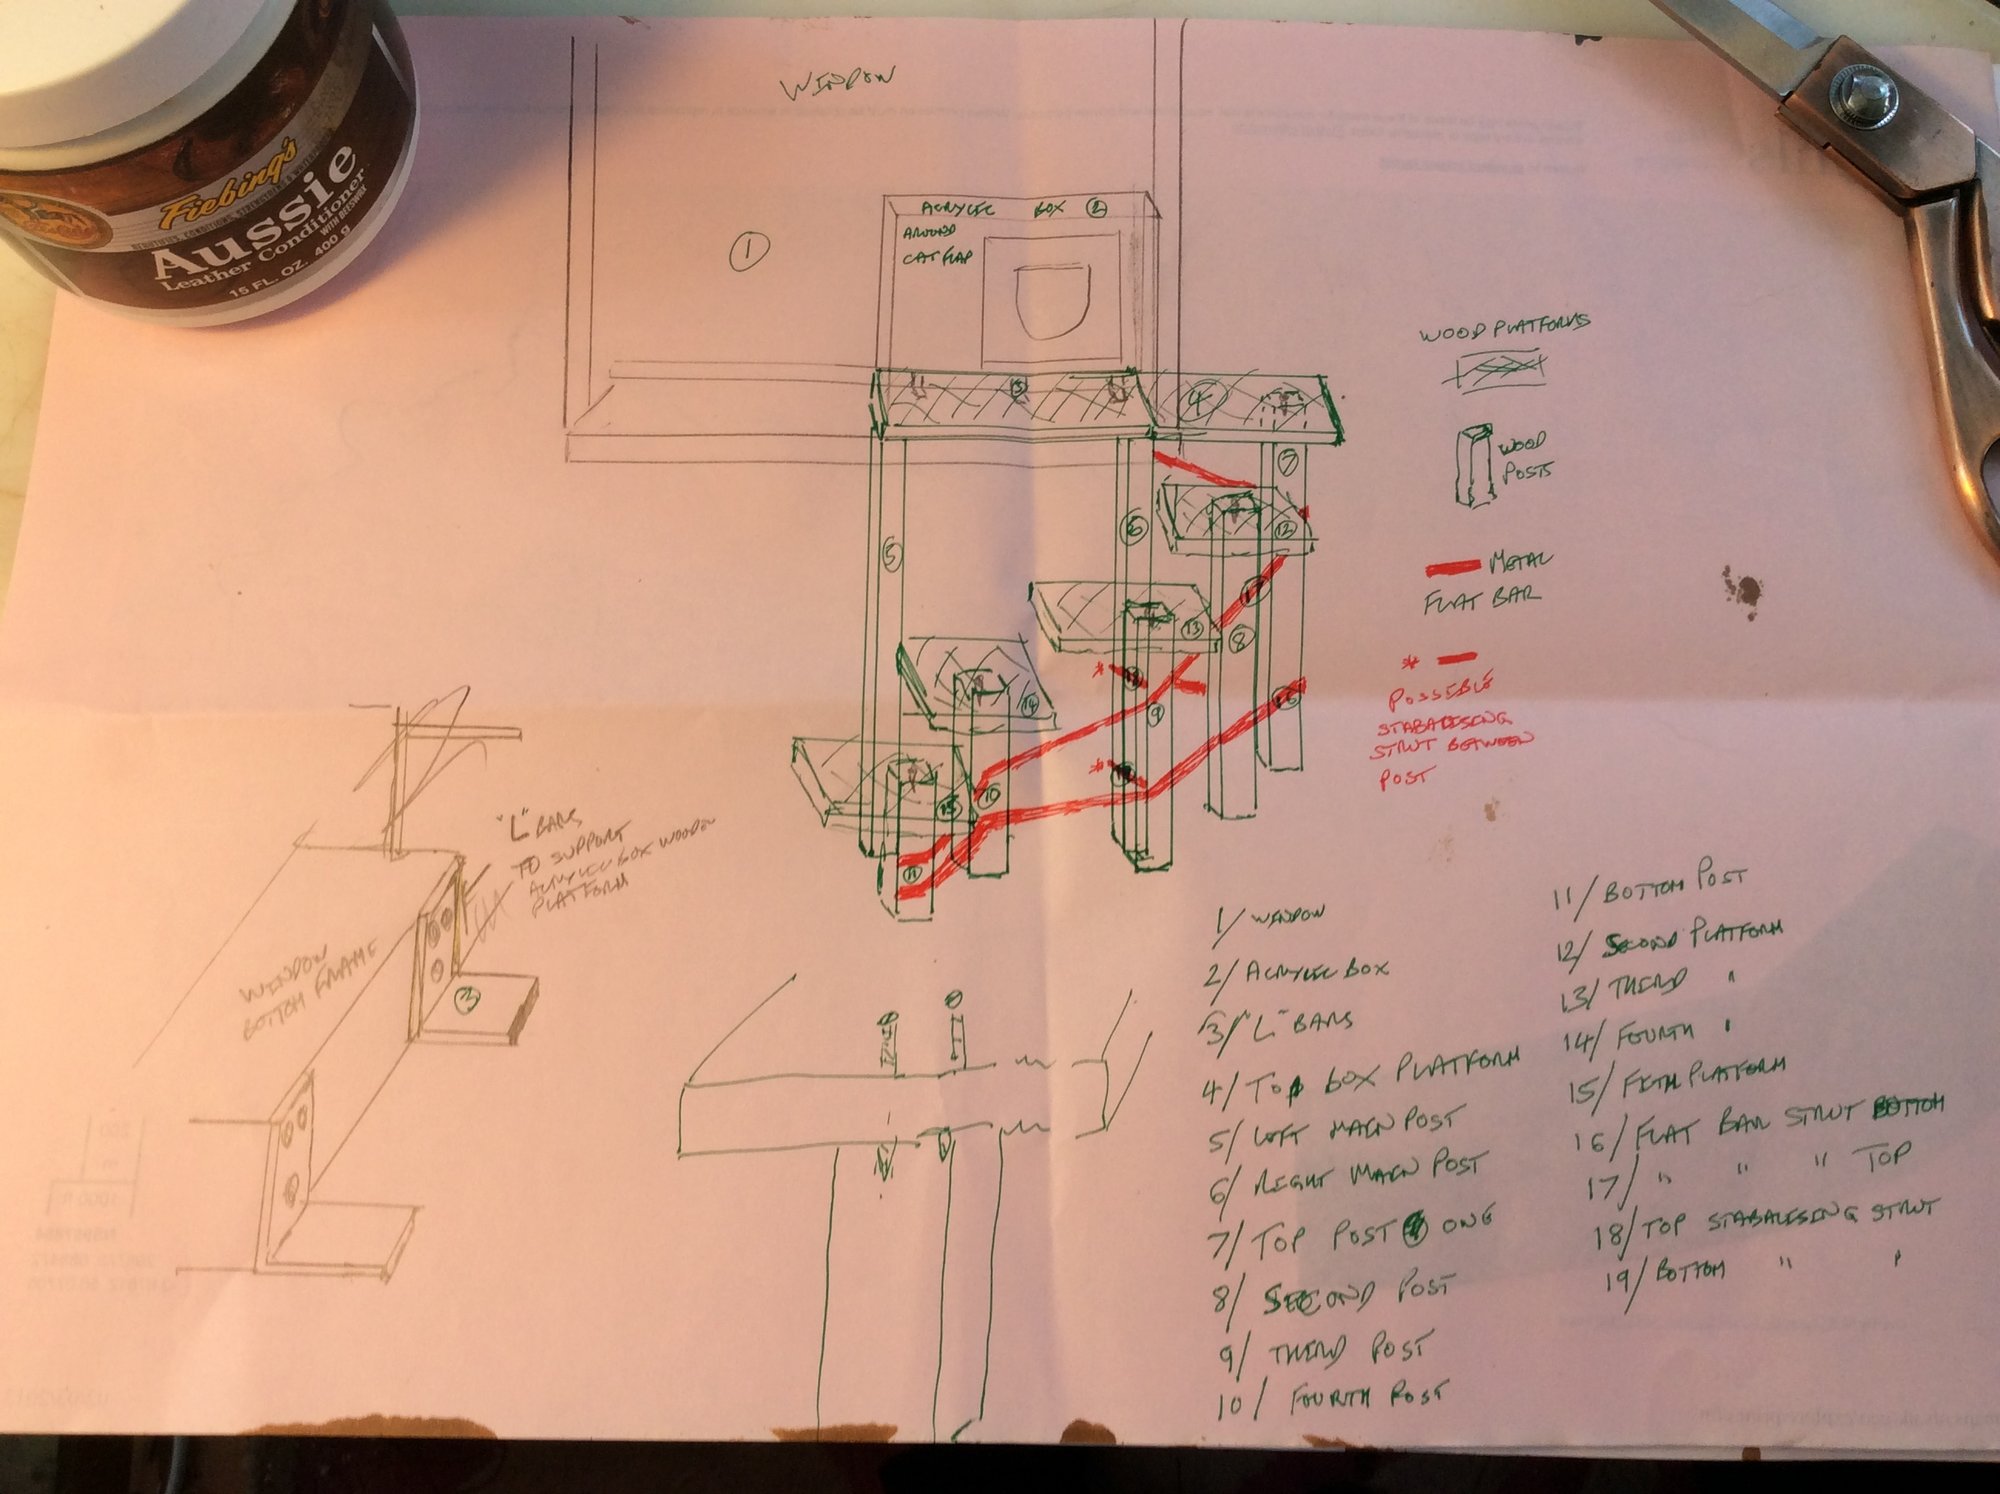 WINDOW
Fiebing's
Aussie
Leather Conditioner
WITH BEESWAX
15 FL. OZ. 400 g
1
ACRYLIC BOX 2
AROUND
CAT FLAP
13
4
7
5
6
12
13
8
17
14
18
9
16
15
10
19
11
WOOD PLATFORMS
WOOD
POSTS
METAL
FLAT BAR
*
POSSIBLE
STABALISING
STRUT BETWEEN
POST
*
*
"L" BARS
TO SUPPORT
ACRYLIC BOX WOODEN
PLATFORM
WINDOW
BOTTOM FRAME
3
1/ WINDOW
2/ ACRYLIC BOX
3/ "L" BARS
4/ TOP BOX PLATFORM
5/ LEFT MAIN POST
6/ RIGHT MAIN POST
7/ TOP POST ONE
8/ SECOND POST
9/ THIRD POST
10/ FOURTH POST
11/ BOTTOM POST
12/ SECOND PLATFORM
13/ THIRD "
14/ FOURTH "
15/ FITH PLATFORM
16/ FLAT BAR STRUT BOTTOM
17/ " " " TOP
18/ TOP STABALISING STRUT
19/ BOTTOM " "